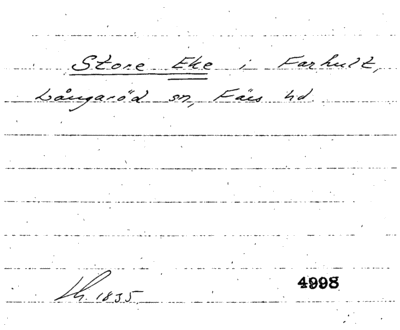 Store Eke i Farhult,
Långaröd sn, Färs hd
Lh. 1835
4998